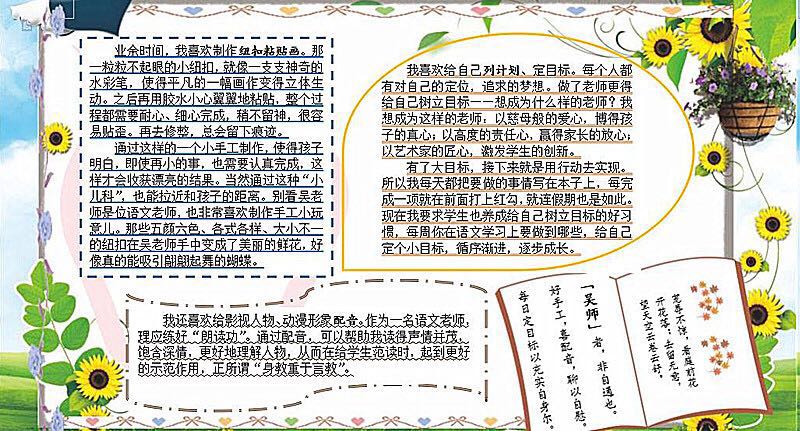 业余时间，我喜欢制作纽扣粘贴画。那
一粒粒不起眼的小纽扣，就像一支支神奇的
水彩笔，使得平凡的一幅画作变得立体生
动。之后再用胶水小心翼翼地粘贴，整个过
程都需要耐心、细心完成，稍不留神，很容
易贴歪。再去修整，总会留下痕迹。
通过这样的一个小手工制作，使得孩子
明白，即使再小的事，也需要认真完成，这
样才会收获漂亮的结果。当然通过这种“小
儿科”，也能拉近和孩子的距离。别看吴老
师是位语文老师，也非常喜欢制作手工小玩
意儿。那些五颜六色、各式各样、大小不一
的纽扣在吴老师手中变成了美丽的鲜花，好
像真的能吸引翩翩起舞的蝴蝶。
我喜欢给自己列计划、定目标。每个人都
有对自己的定位，追求的梦想。做了老师更得
给自己树立目标——想成为什么样的老师？我
想成为这样的老师：以慈母般的爱心，博得孩
子的真心；以高度的责任心，赢得家长的放心；
以艺术家的匠心，激发学生的创新。
有了大目标，接下来就是用行动去实现。
所以我每天都把要做的事情写在本子上，每完
成一项就在前面打上红勾，就连假期也是如此。
现在我要求学生也养成给自己树立目标的好习
惯，每周你在语文学习上要做到哪些，给自己
定个小目标，循序渐进，逐步成长。
我还喜欢给影视人物、动漫形象配音。作为一名语文老师，
理应练好“朗读功”。通过配音，可以帮助我读得声情并茂、
饱含深情，更好地理解人物，从而在给学生范读时，起到更好
的示范作用，正所谓“身教重于言教”。
「吴师」者，非自通也。
好手工，喜配音，聊以自慰。
每日定目标以充实自身尔。
宠辱不惊，看庭前花
开花落；去留无意，
望天空云卷云舒。